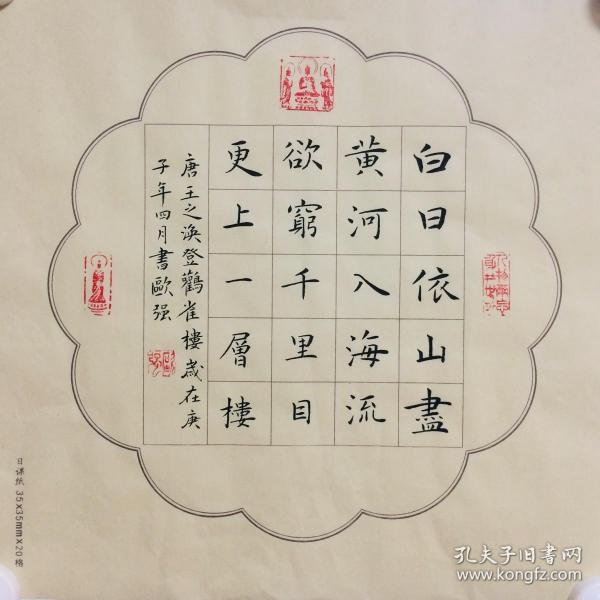 白日依山盡
黃河入海流
欲窮千里目
更上一層樓
唐王之渙登鸛雀樓歲在庚
子年四月書歐强
日课纸 35x35mmx20格
孔夫子旧书网
www.kongfz.com